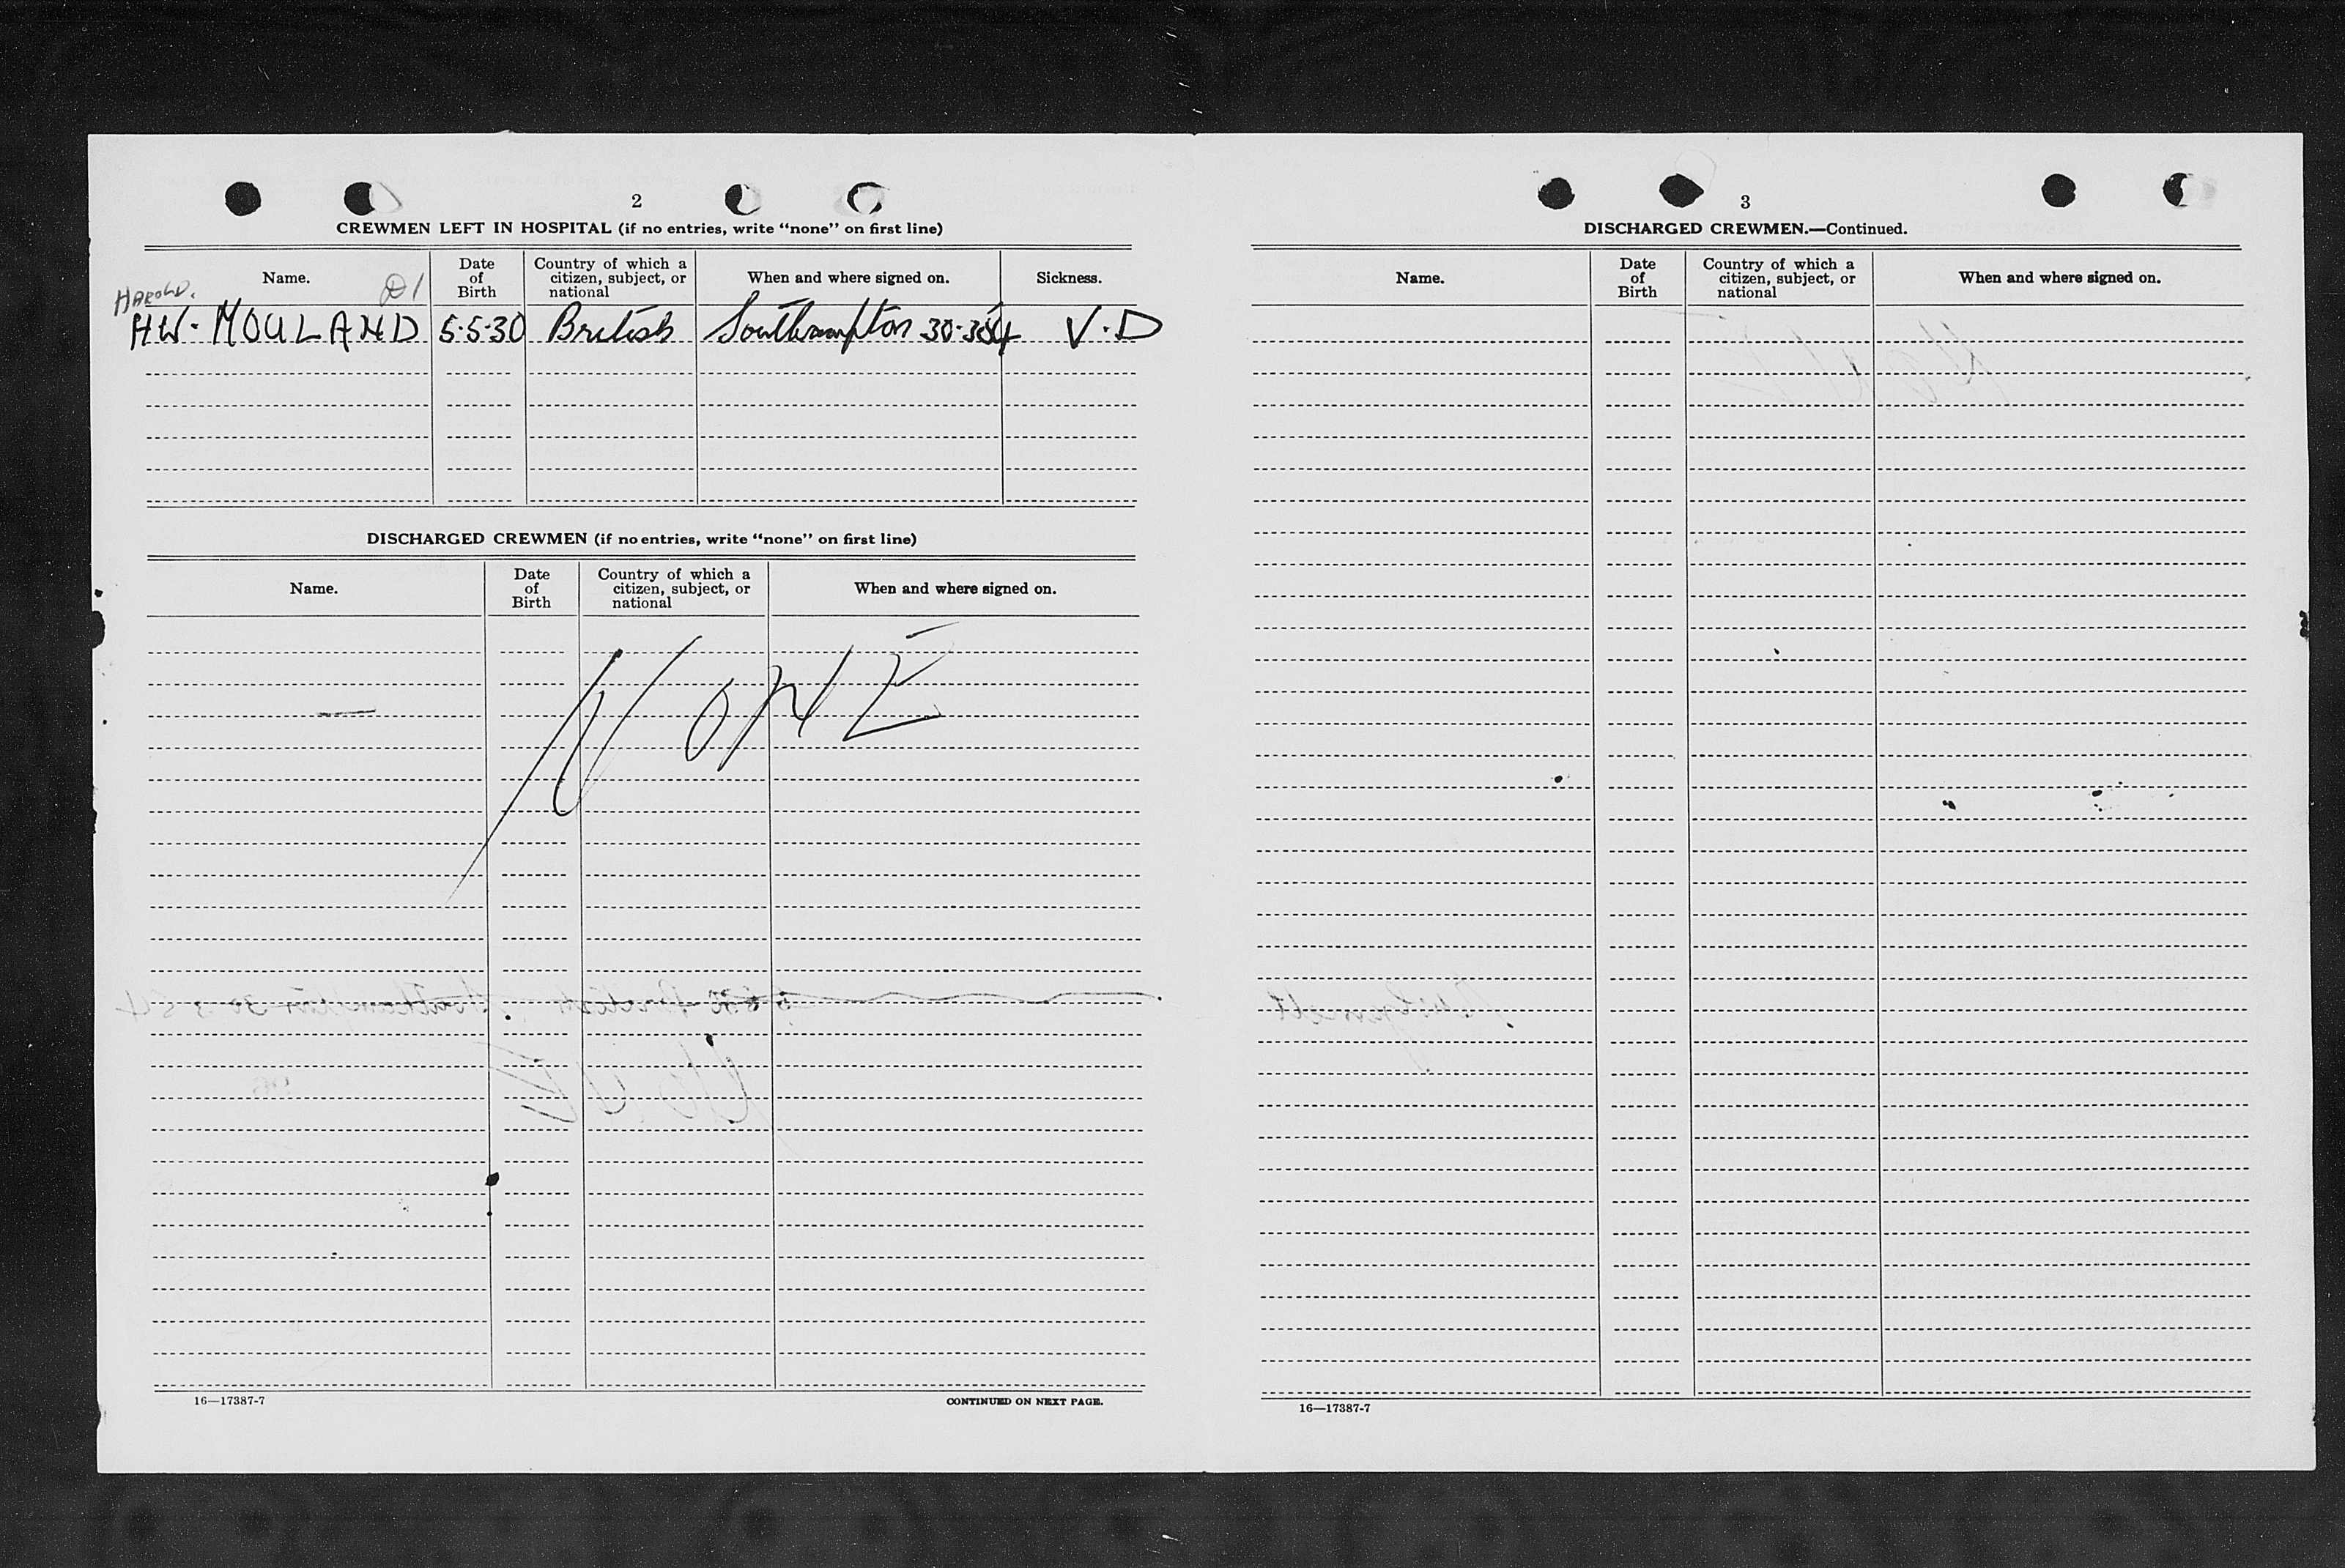 2
CREWMEN LEFT IN HOSPITAL (if no entries, write "none" on first line)
Name.
Date of Birth
Country of which a citizen, subject, or national
When and where signed on.
Sickness.
HAROLD.
HW. MOULAND 5.5.30 British Southampton 30.3.54 V.D
DISCHARGED CREWMEN (if no entries, write "none" on first line)
Name.
Date of Birth
Country of which a citizen, subject, or national
When and where signed on.
NONE
16—17387-7
CONTINUED ON NEXT PAGE.
3
DISCHARGED CREWMEN.—Continued.
Name.
Date of Birth
Country of which a citizen, subject, or national
When and where signed on.
16—17387-7